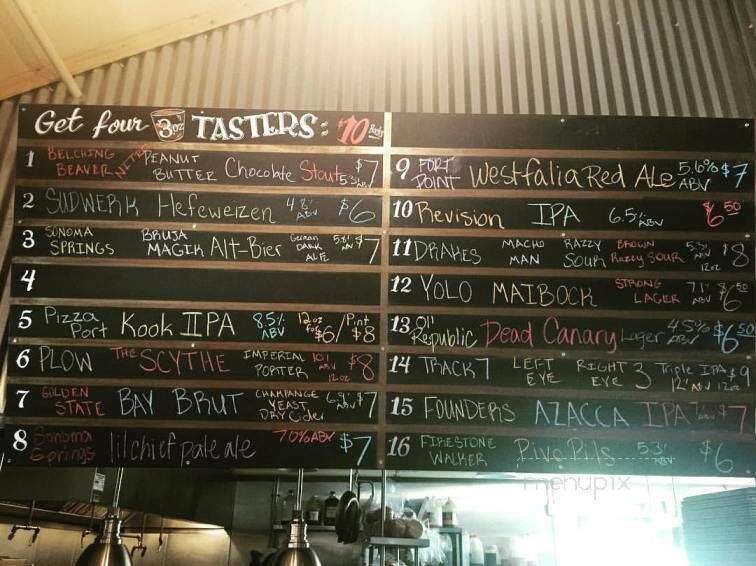 Get four 3oz TASTERS: $10
1 BELCHING BEAVER NITRO PEANUT BUTTER Chocolate Stout 5.3% ABV $7
2 SUDWERK Hefeweizen 4.8% ABV $6
3 SONOMA SPRINGS BRUJA MAGIK Alt-Bier German DARK ALE 5.8% ABV $7
4
5 Pizza Port Kook IIPA 8.5% ABV 12oz For $6/Pint $8
6 PLOW THE SCYTHE IMPERIAL PORTER 10.1 ABV 12oz $8
7 GOLDEN STATE BAY BRUT CHAMPANGE YEAST DRY Cider ABV $7
8 Sonoma Springs lil chief pale ale 7.0% ABV $7
9 FORT POINT Westfalia Red Ale 5.6% ABV $7
10 Revision IPA 6.5% ABV $6.50
11 DRAKES MACHO MAN RAZZY SOUR BROWN Razzy SOUR 5.3% ABV 12oz $8
12 YOLO MAIBOCK STRONG LAGER 7.1% ABV $6.50
13 Ol' Republic Dead Canary Lager 4.5% ABV $6.50
14 TRACK 7 LEFT EYE RIGHT EYE 3 Triple IPA 12% ABV 12oz $9
15 FOUNDERS AZACCA IPA 7% ABV $7
16 FIRESTONE WALKER Pivo Pils 5.3% ABV $6
menupix